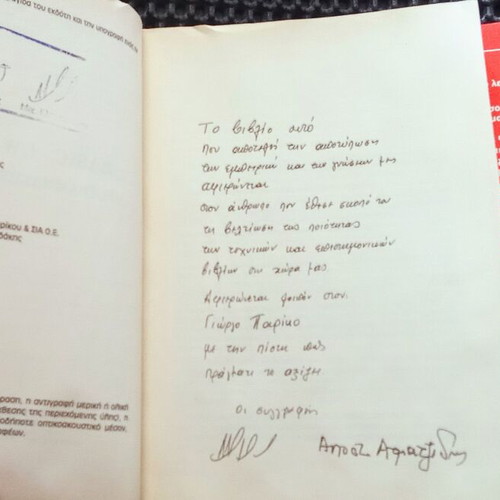 του εκδότη και την υπογραφή ενός εκ
ρίκου & ΣΙΑ Ο.Ε.
δάκης
ραση, η αντιγραφή μερική ή ολική
θεσης της περιεχόμενης ύλης, η
οδήποτε οπτικοακουστικό μέσον,
φέων.
Το βιβλίο αυτό
που αποτελεί την αποτύπωση
της εμπειρίας και των γνώσεών μας
αφιερώνεται
στον άνθρωπο που έθεσε σκοπό του
τη βελτίωση της ποιότητας
των τεχνικών και επιστημονικών
βιβλίων στη χώρα μας
Αφιερώνεται λοιπόν στον
Γιώργο Παρίκο
με την πίστη πως
πράγματι το αξίζει.
οι συγγραφείς